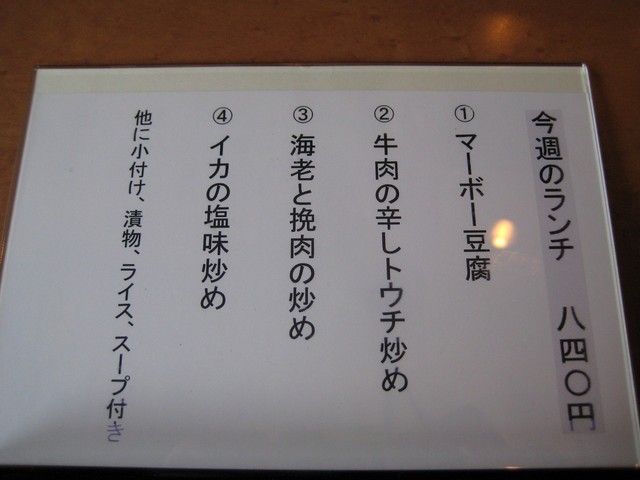 今週のランチ 八四〇円
① マーボー豆腐
② 牛肉の辛しトウチ炒め
③ 海老と挽肉の炒め
④ イカの塩味炒め
他に小付け、漬物、ライス、スープ付き